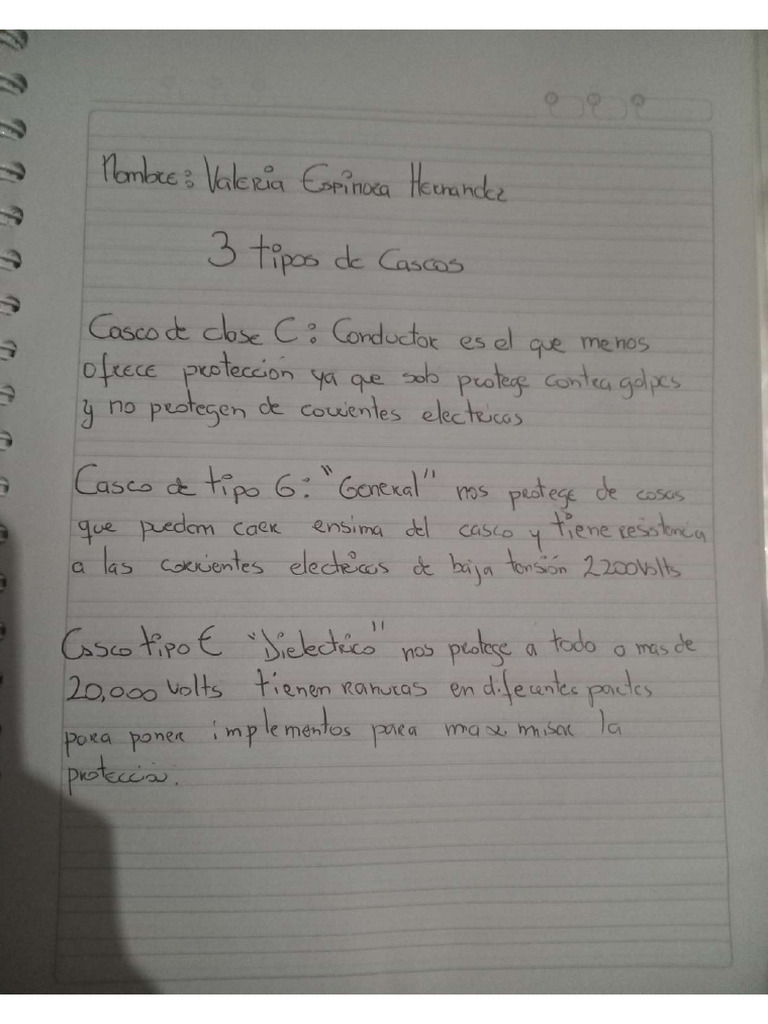 Nombre: Valeria Espinoza Hernandez
3 tipos de Cascos
Casco de clase C: Conductor es el que menos
ofrece protección ya que solo protege contra golpes
y no protegen de corrientes electricas
Casco de tipo G: "General" nos protege de cosas
que puedan caer ensima del casco y tiene resistencia
a las corrientes electricas de baja tensión 2200Volts
Casco tipo E "Dielectrico" nos protege a todo o mas de
20,000 Volts tienen ranuras en diferentes partes
para poner implementos para maximisar la
protección.